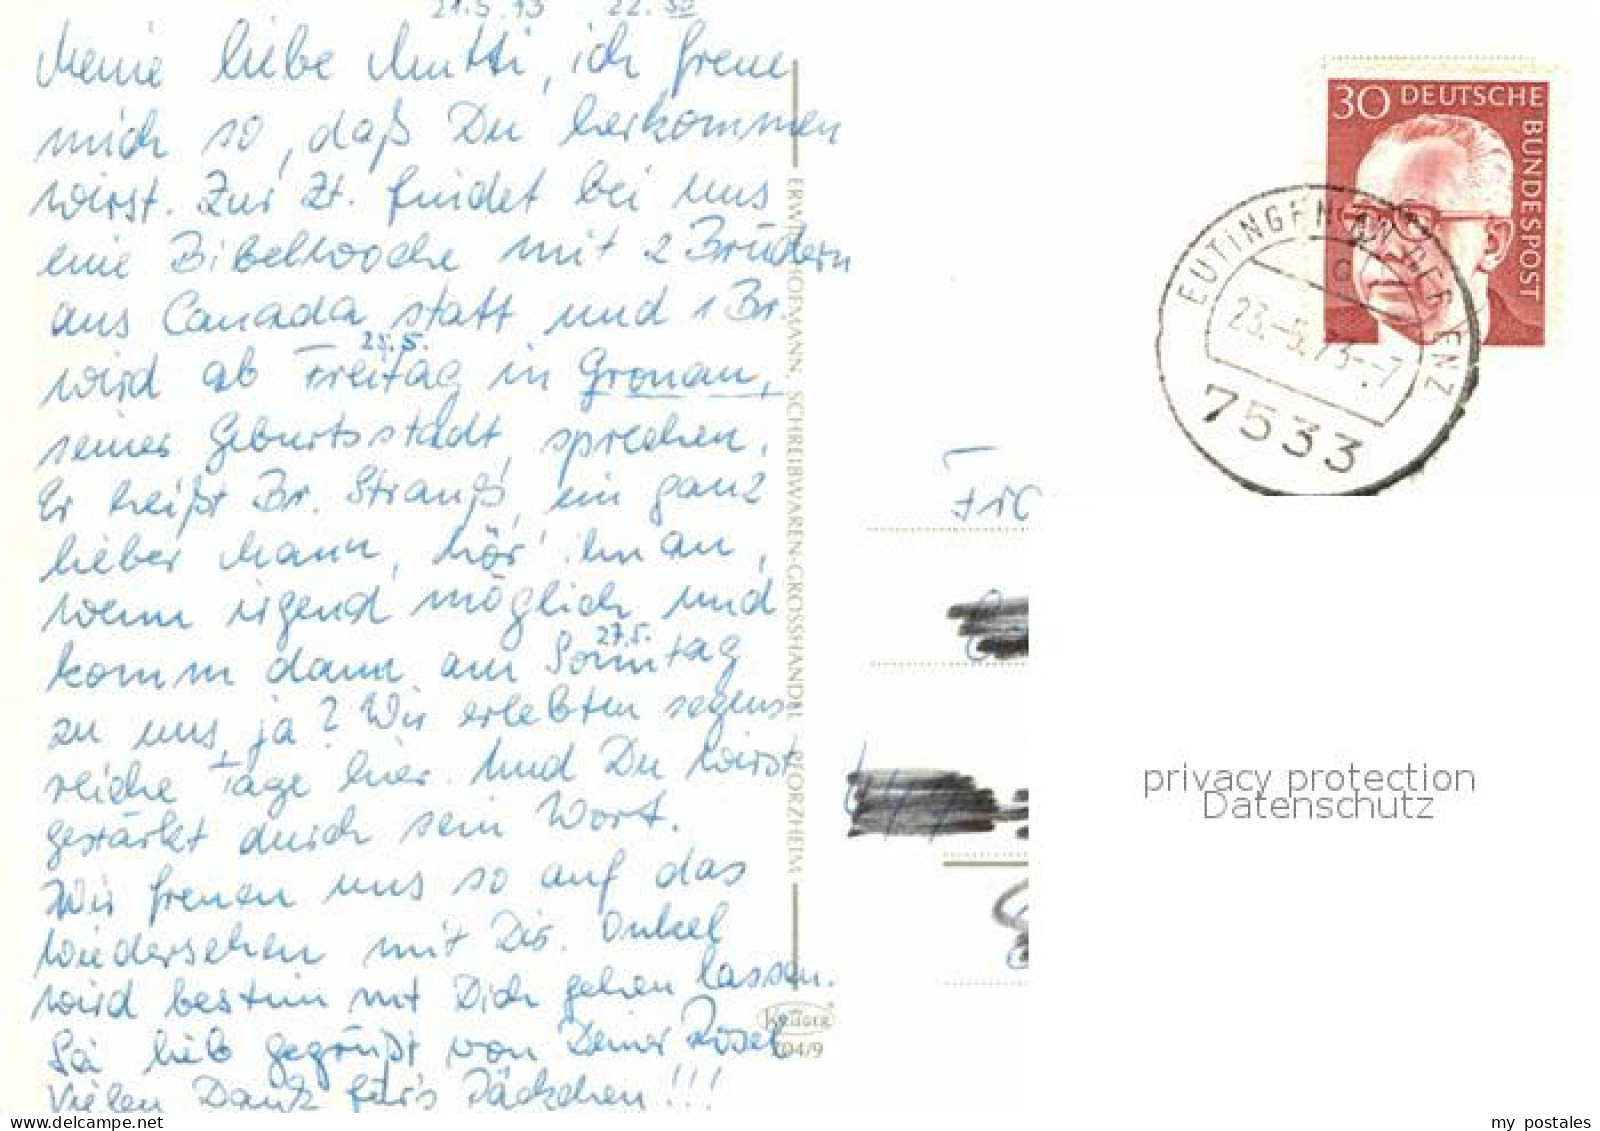 21.5.73 22.30
Meine liebe Mutti, ich freue
mich so, daß Du herkommen
wirst. Zur Zt. findet bei uns
eine Bibelwoche mit 2 Brüdern
aus Canada statt und 1 Br.
25.5.
wird ab Freitag in Gronau,
seiner Geburtsstadt, sprechen.
Er heißt Br. Strauß, ein ganz
lieber Mann, hör' ihn an,
wenn irgend möglich und
27.5.
komm dann am Sonntag
zu uns, ja? Wir erlebten segens-
reiche Tage hier. Und Du wirst
gestärkt durch sein Wort.
Wir freuen uns so auf das
Wiedersehen mit Dir. Onkel
wird bestim mt Dich gehen lassen.
Sei lieb gegrüßt von Deiner Rosel
Vielen Dank für's Päckchen!!!
ERWIN HOFMANN, SCHREIBWAREN-GROSSHANDEL PFORZHEIM
KRÜGER
704/9
30 DEUTSCHE
BUNDESPOST
EUTINGEN AN DER ENZ
a
23.-5.73.-7
7533
privacy protection
Datenschutz
my postales